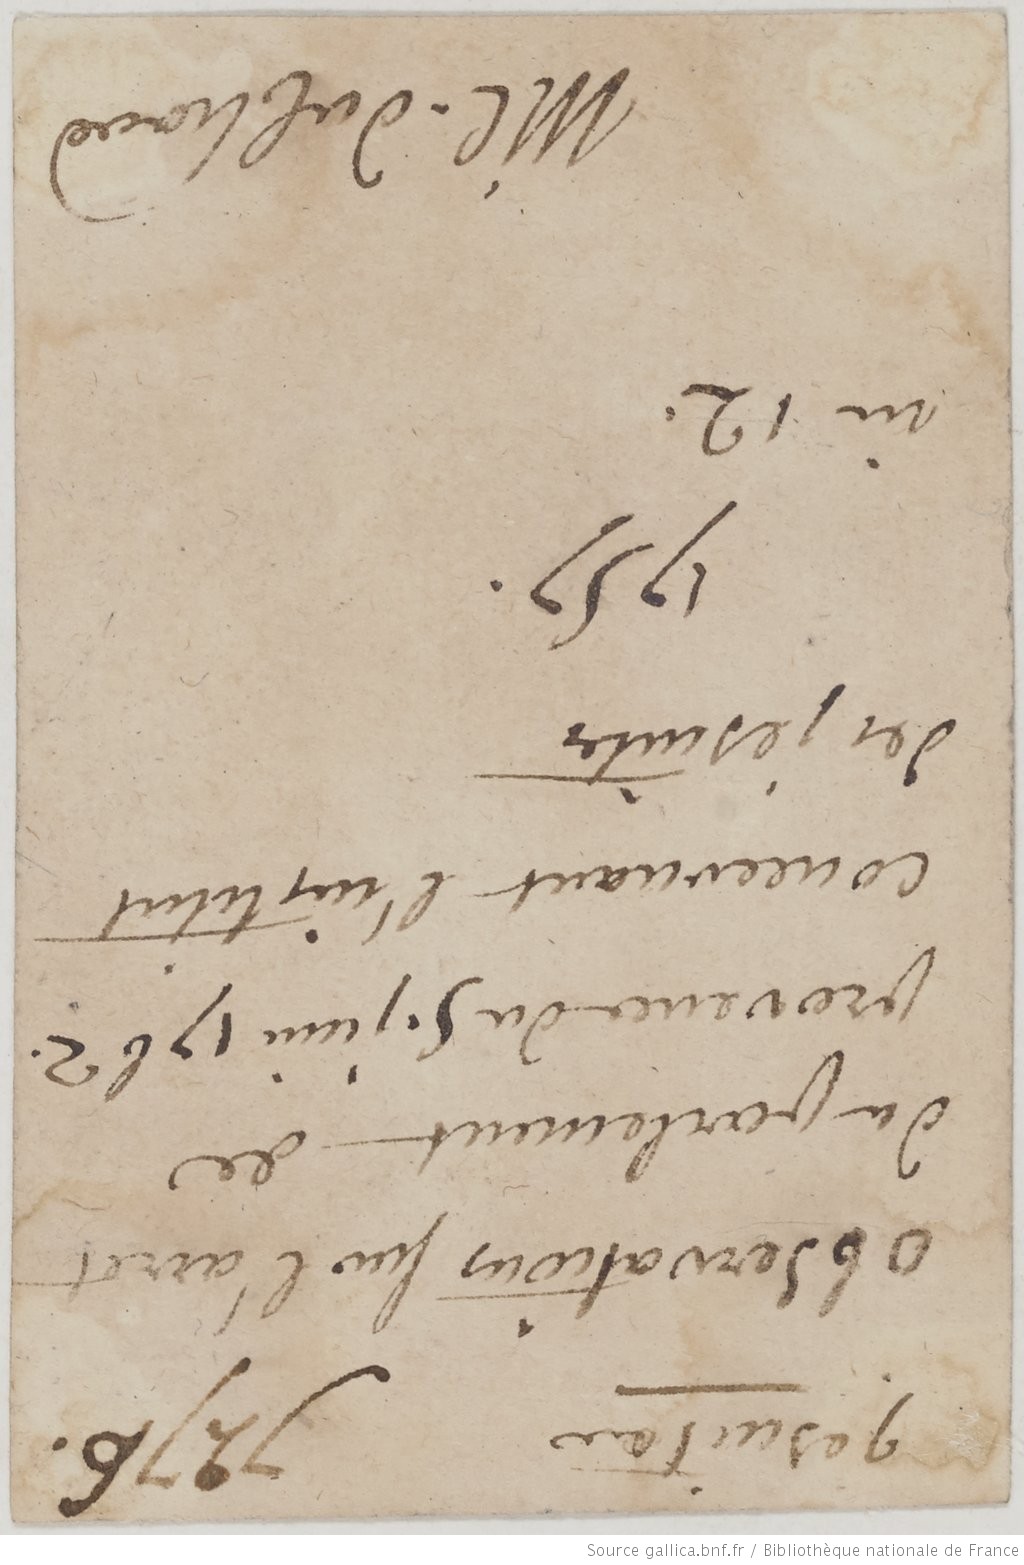 jesuitar 7276.
observations sur l'arret
du parlement de
provence du 5. juin 1762.
concernant l'institut
des jésuites
1757.
in 12.
Mlle
Source gallica.bnf.fr / Bibliothèque nationale de France